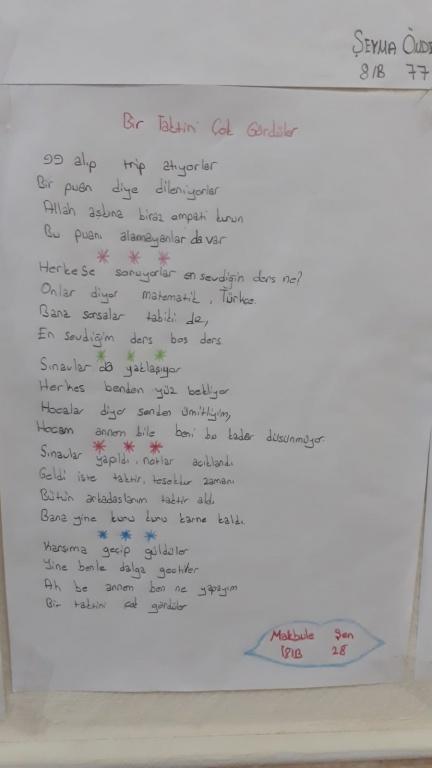 ŞEYMA ÖNDE
8/B 77
Bir Taktiri Çok Gördüler
99 alıp trip atıyorlar
Bir puan diye dileniyorlar
Allah aşkına biraz empati kurun
Bu puanı alamayanlar da var
Herkese soruyorlar en sevdiğin ders ne?
Onlar diyor matematik, Türkçe.
Bana sorsalar tabiki de,
En sevdiğim ders boş ders.
Sınavlar da yaklaşıyor
Herkes benden yüz bekliyor
Hocalar diyor senden ümitliyim,
Hocam annem bile beni bu kadar düşünmüyor.
Sınavlar yapıldı, notlar açıklandı
Geldi işte taktir, teşekkür zamanı
Bütün arkadaşlarım taktir aldı
Bana yine kuru kuru karne kaldı.
Karşıma geçip güldüler
Yine benle dalga geçtiler
Ah be annem ben ne yapayım
Bir taktiri çok gördüler
Makbule Şen
8/B 28